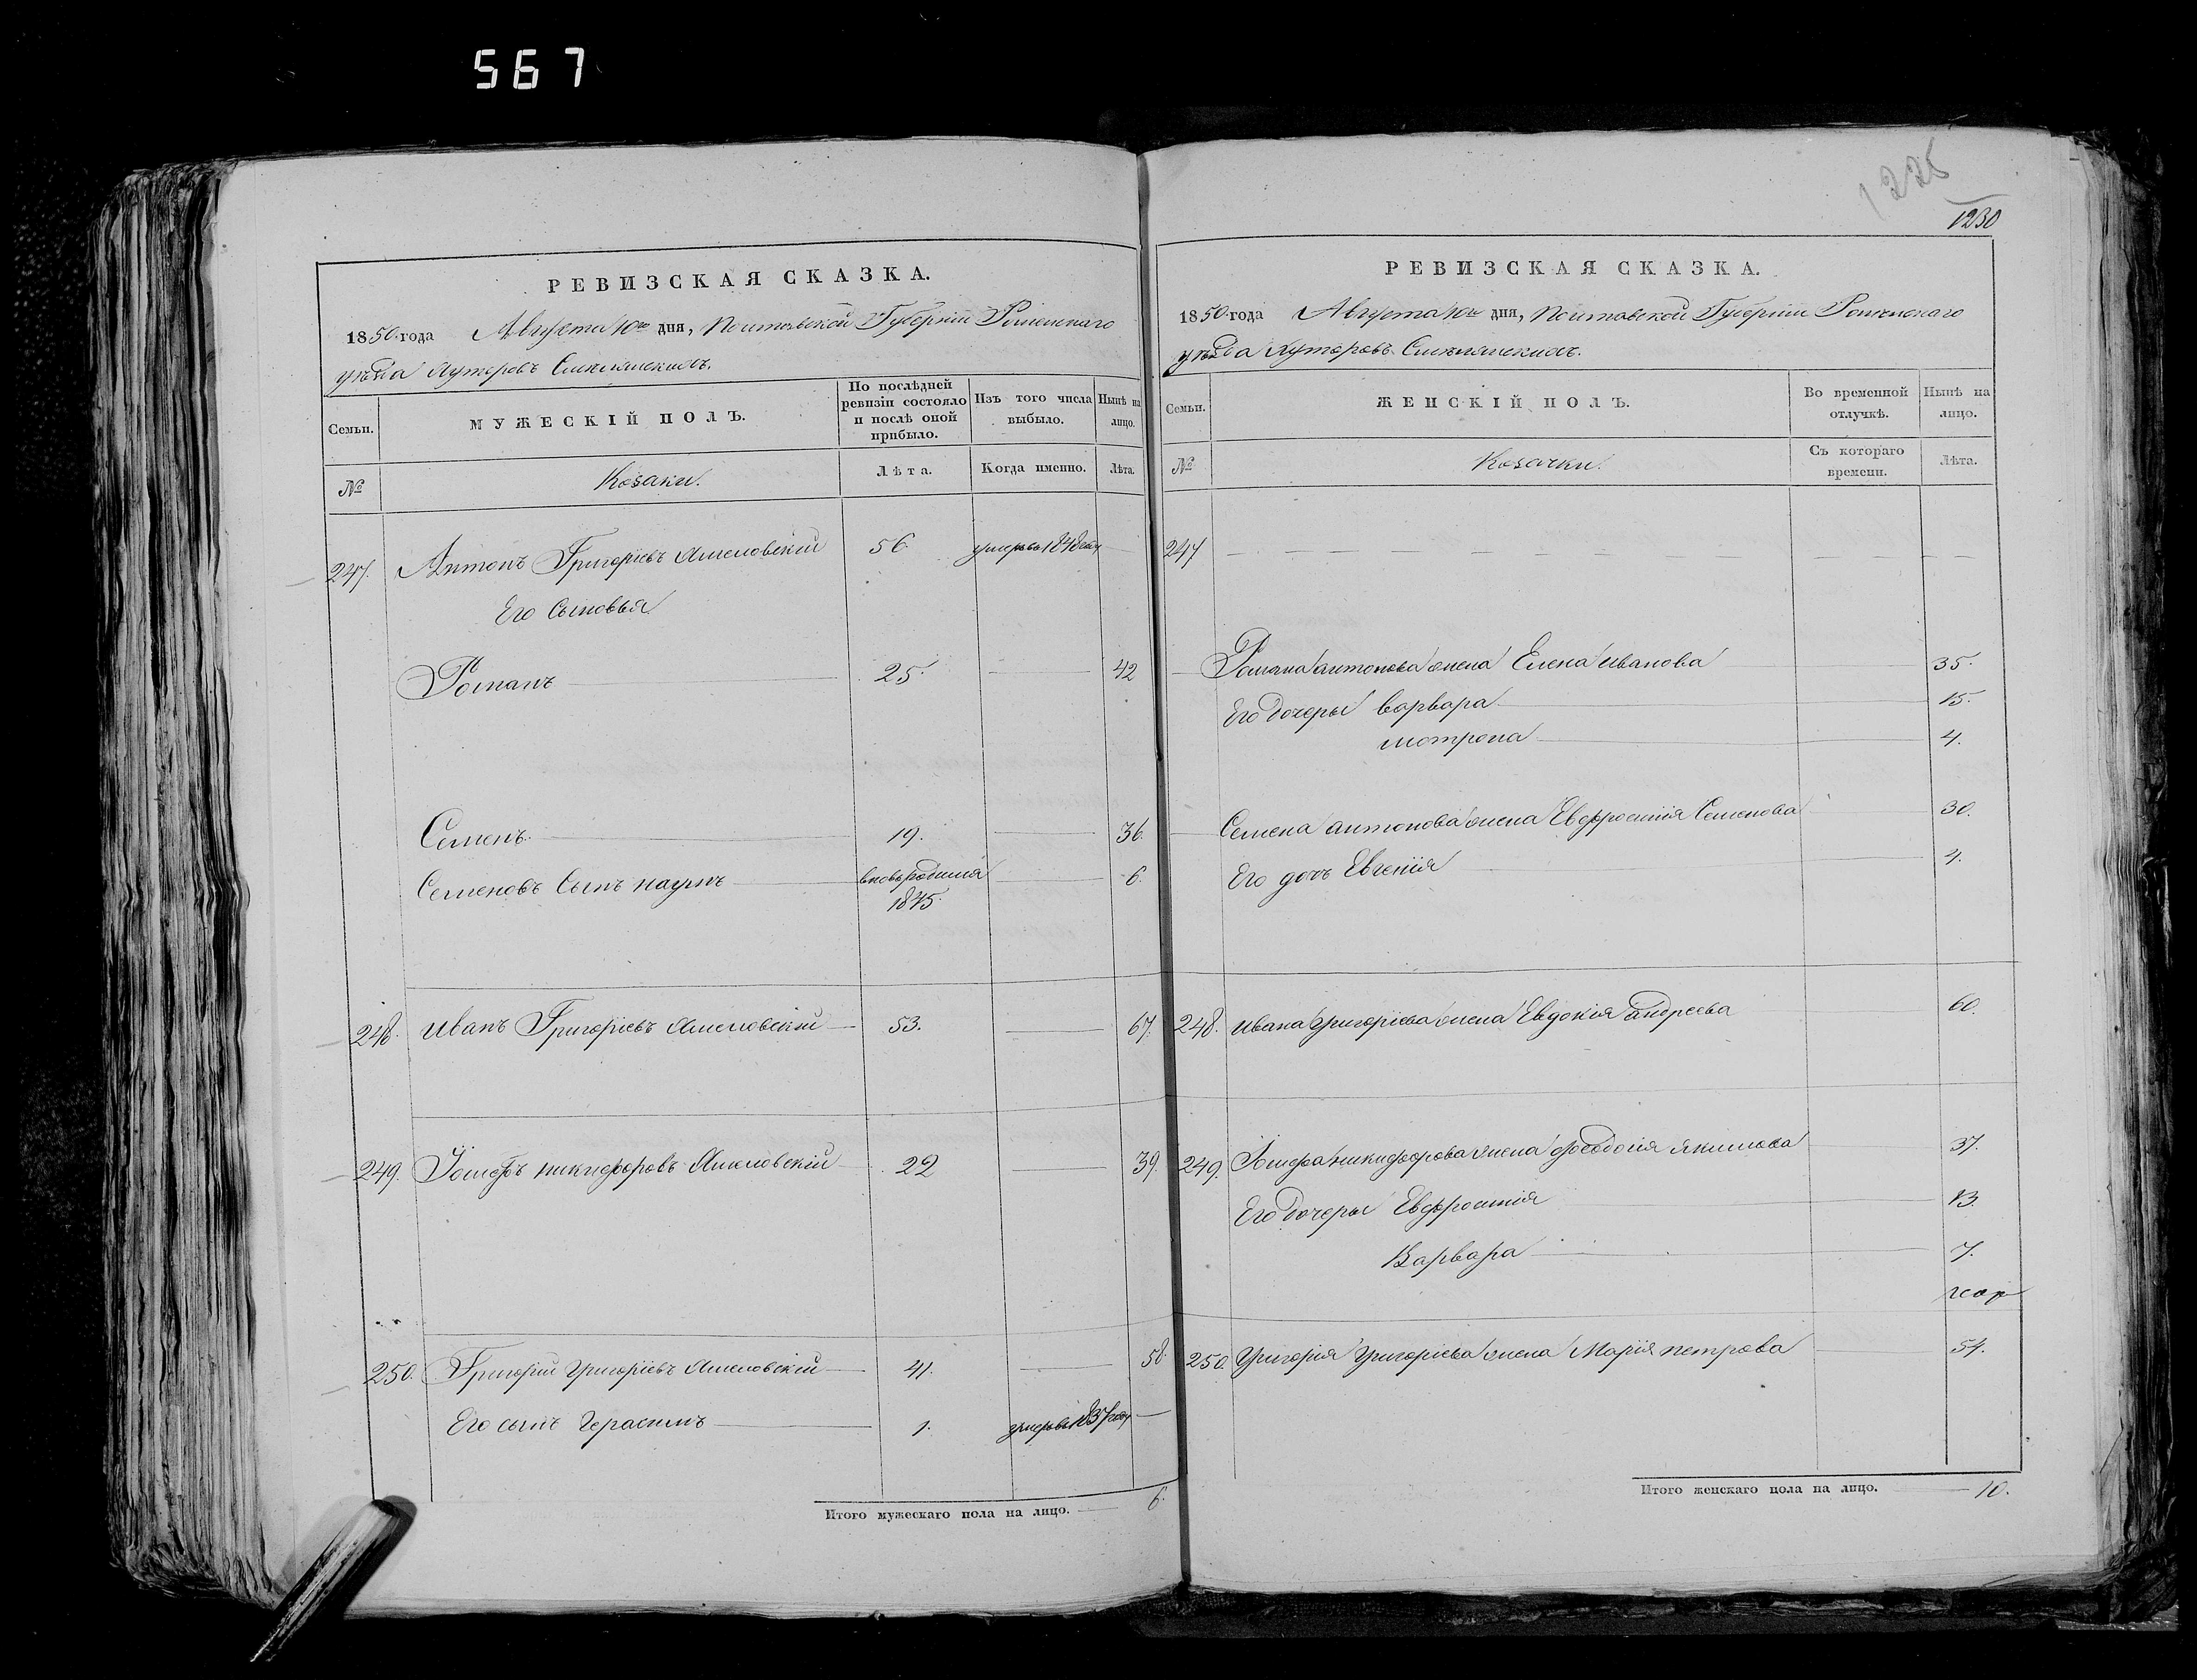 567
1225
1230
РЕВИЗСКАЯ СКАЗКА.
1850 года Августа 10го дня, Полтавской Губерніи Роменскаго
уѣзда Хуторовъ Смѣлянскихъ.
Семьи.
МУЖЕСКІЙ ПОЛЪ.
По послѣдней ревизіи состояло и послѣ оной прибыло.
Изъ того числа выбыло.
Нынѣ на лицо.
№
Козаки.
Лѣта.
Когда именно.
Лѣта.
247. Антонъ Григоріевъ 56 умеръ въ 1848 году
Его Сыновья
Романъ 25. 42
Семенъ 19. 36.
Семеновъ Сынъ Наумъ вновь родился 1845. 6.
248. Иванъ Григоріевъ 53. 67.
249. Іосифъ Никифоровъ 22 39.
250. Григорій Григоріевъ 41. 58.
Его сынъ Герасимъ 1. умеръ въ 1837 году
Итого мужескаго пола на лицо. 6.
РЕВИЗСКАЯ СКАЗКА.
1850 года Августа 10го дня, Полтавской Губерніи Роменскаго
уѣзда Хуторовъ Смѣлянскихъ.
Семьи.
ЖЕНСКІЙ ПОЛЪ.
Во временной отлучкѣ.
Нынѣ на лицо.
№
Козачки.
Съ котораго времени.
Лѣта.
247
Романа Антонова жена Елена Иванова 35.
Его дочеры Варвара 15.
Мотрона 4.
Семена Антонова жена Евфросинія Семенова 30.
Его дочь Евгенія 4.
248. Ивана Григоріева жена Евдокія Андреева 60.
249. Іосифа Никифорова жена Феодосія Якимова 37.
Его дочеры Евфросинія 13.
Варвара 7.
250. Григорія Григоріева жена Марія Петрова 54.
Итого женскаго пола на лицо. 10.